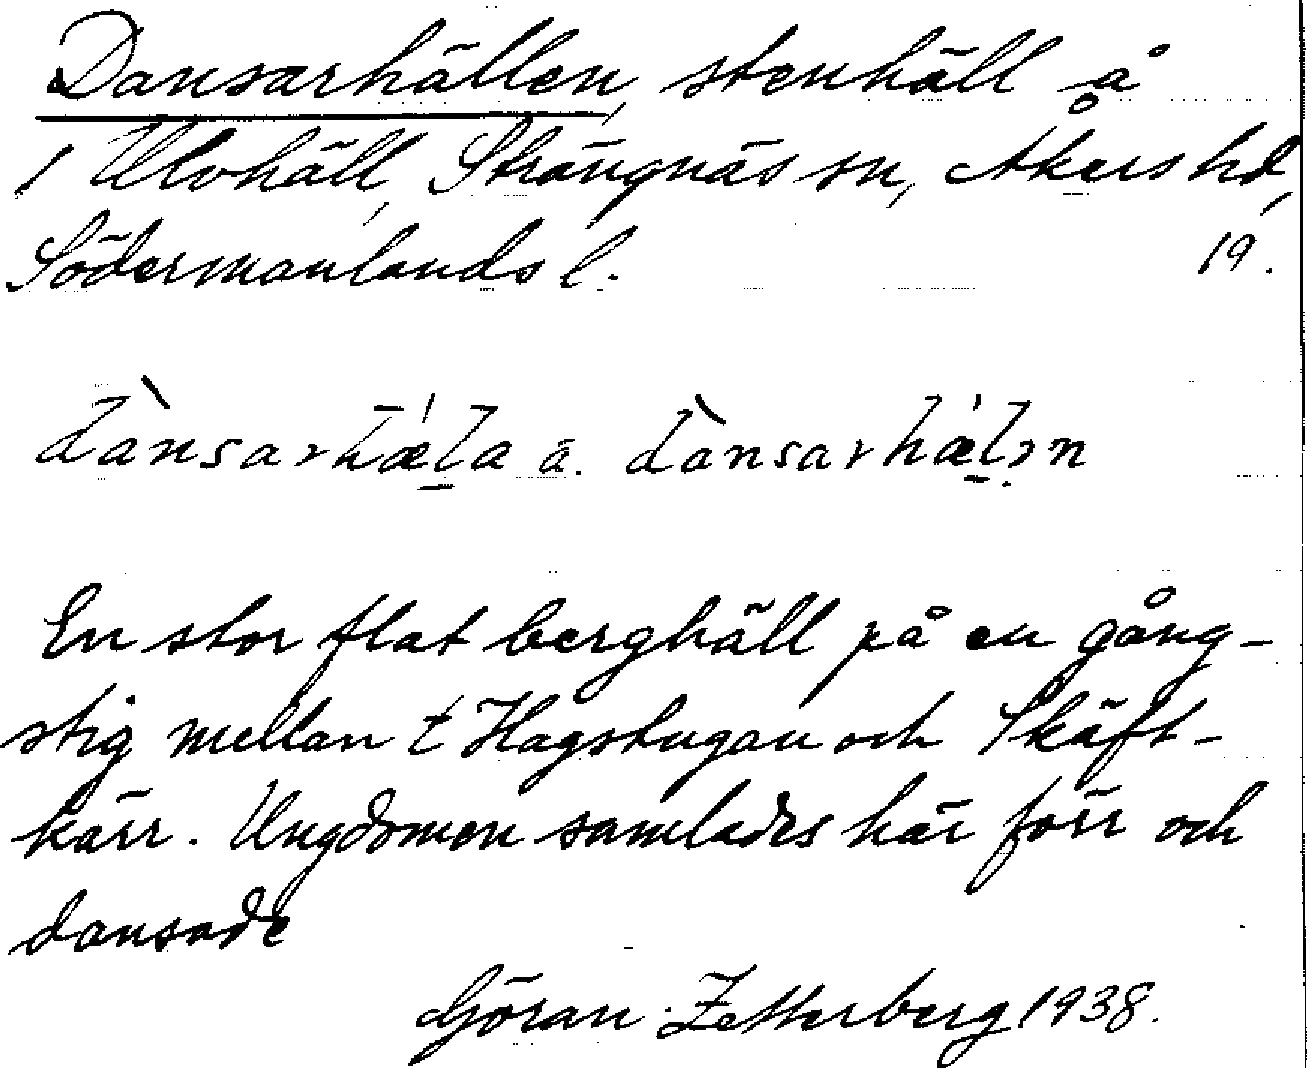 Dansarhällen, stenhäll å
1 Ulvhäll, Strängnäs sn, Åkers hd,
Södermanlands l. 19.
dànsarhǽ̱la a. dànsarhǽ̱lən
En stor flat berghäll på en gång-
stig mellan t Hagstugan och Skäft-
kärr. Ungdomen samlades här förr och
dansade
Göran Zetterberg 1938.